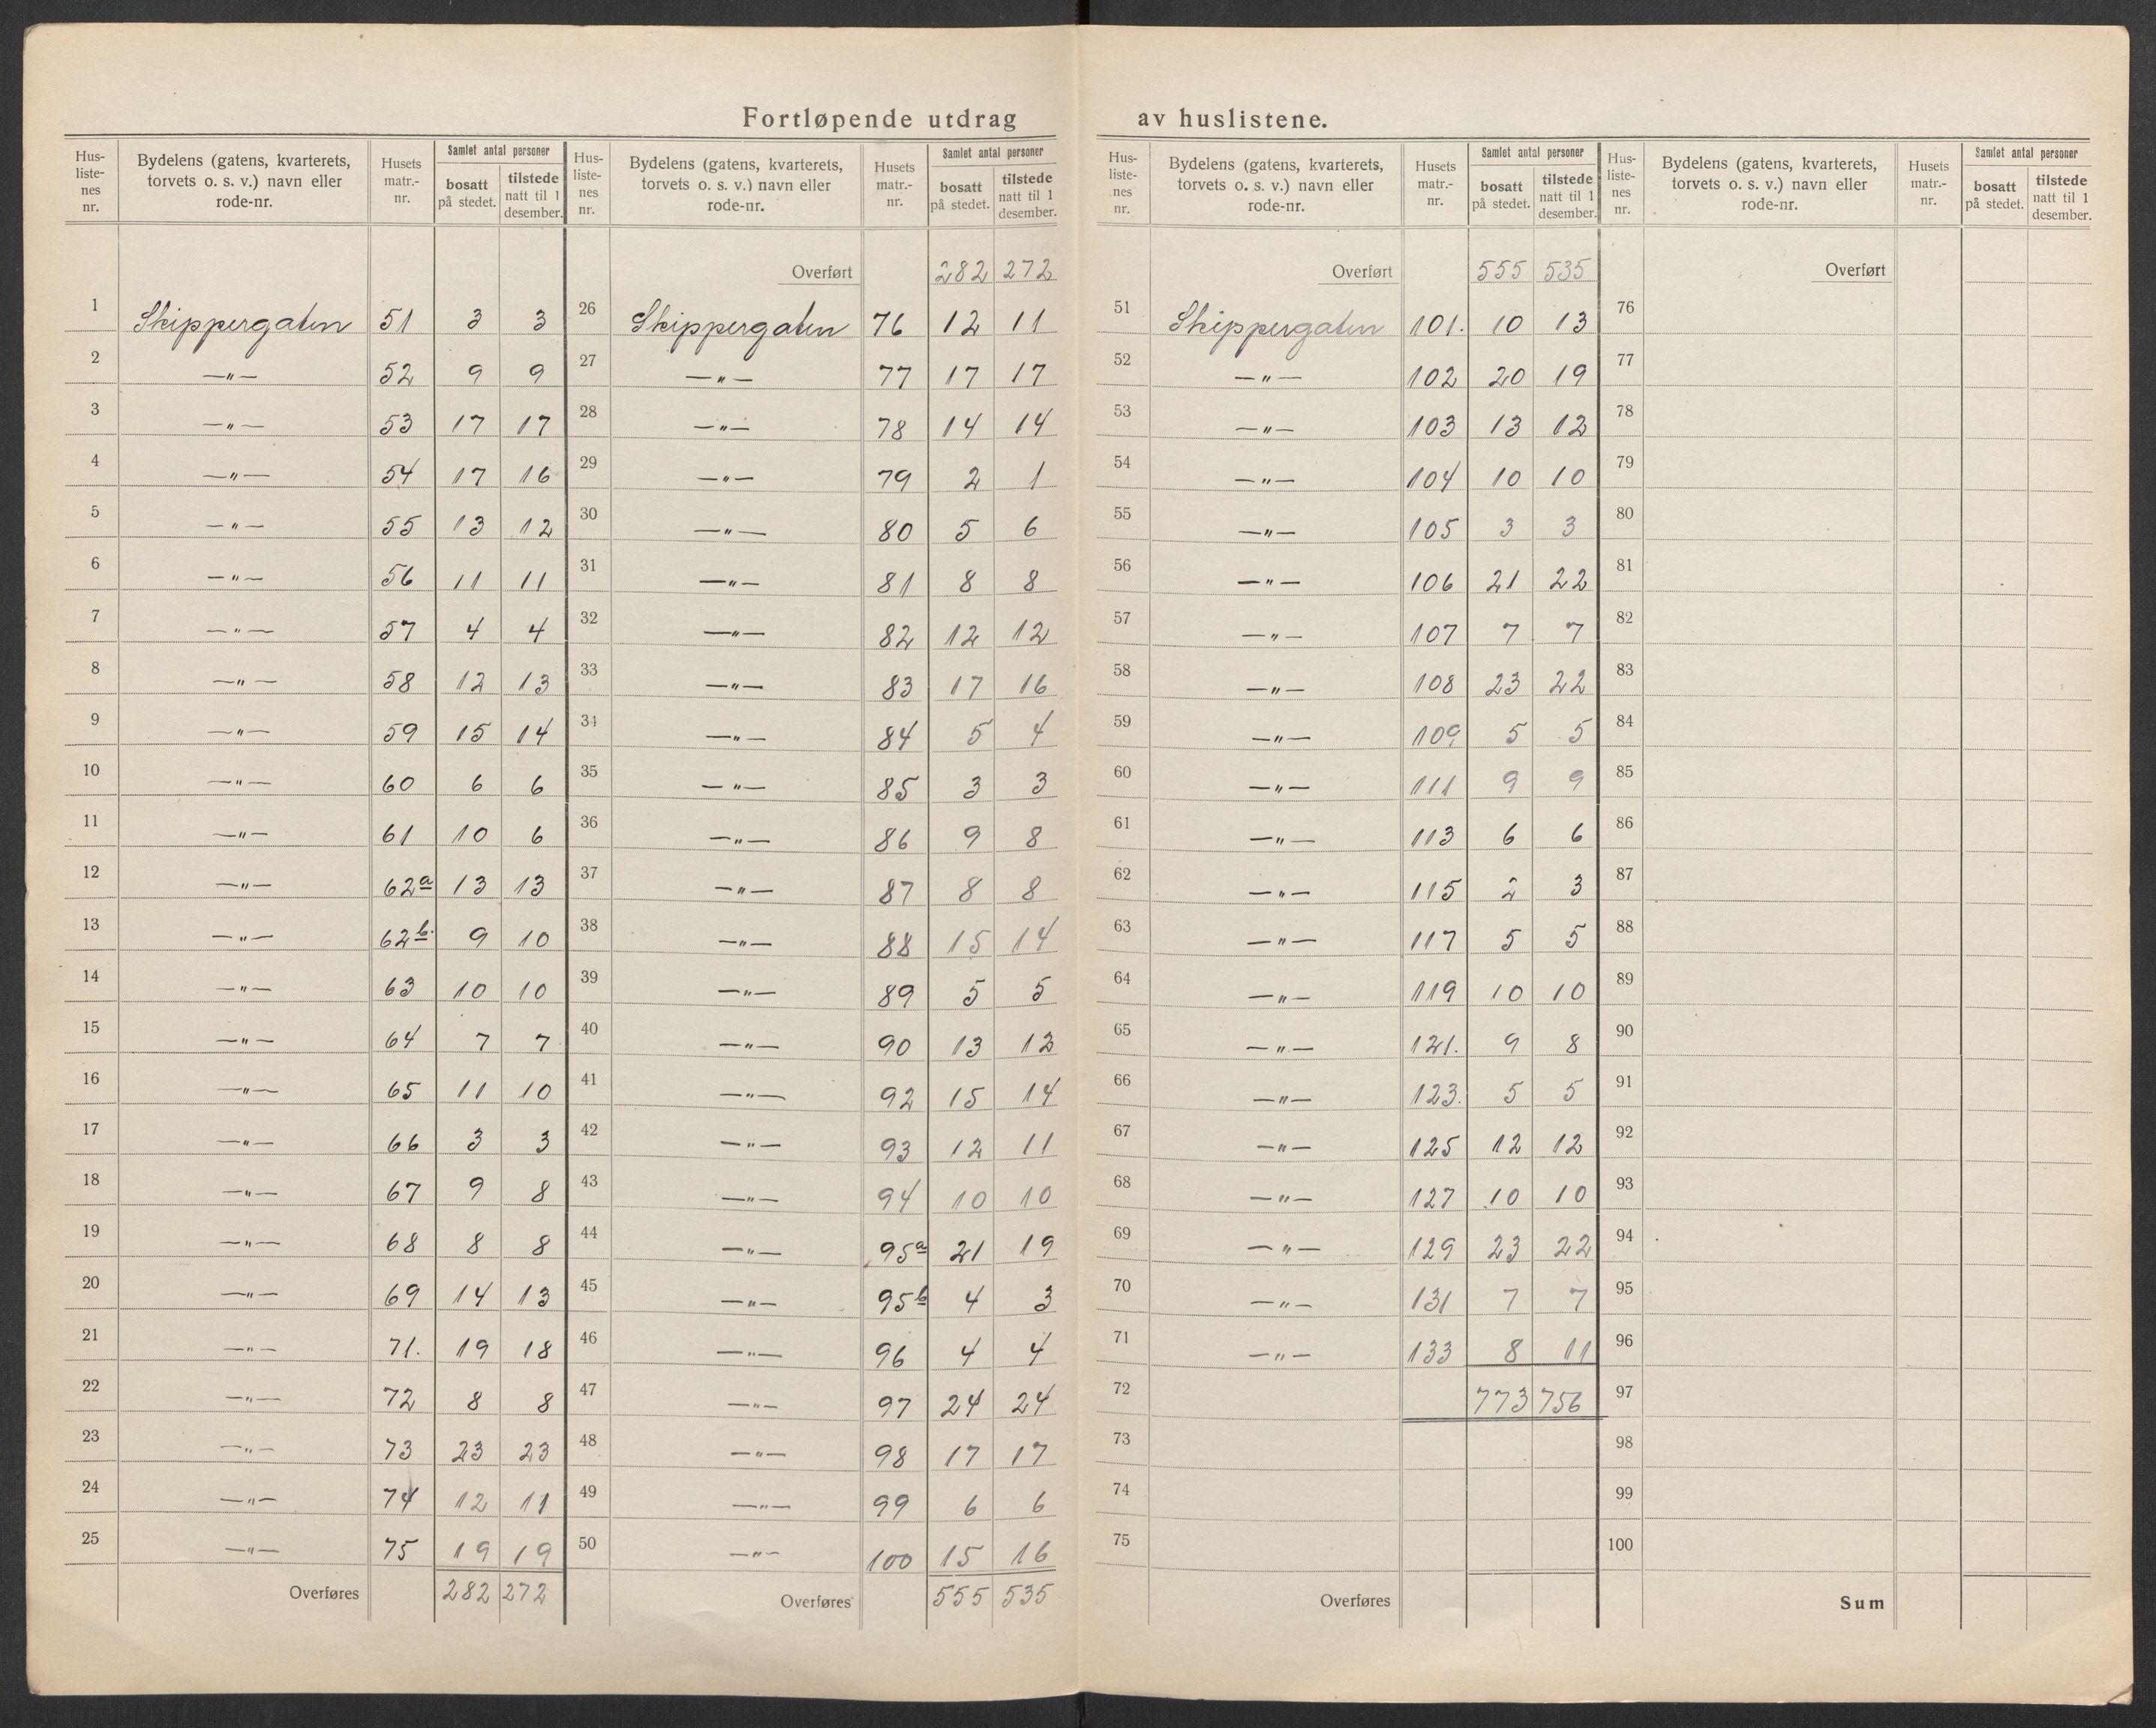 Fortløpende utdrag av huslistene.
Hus-liste-nes nr. | Bydelens (gatens, kvarterets, torvets o. s. v.) navn eller rode-nr. | Husets matr.-nr. | Samlet antal personer | bosatt på stedet. | tilstede natt til 1 desember.
1 Skippergaten 51 3 3
2 —"— 52 9 9
3 —"— 53 17 17
4 —"— 54 17 16
5 —"— 55 13 12
6 —"— 56 11 11
7 —"— 57 4 4
8 —"— 58 12 13
9 —"— 59 15 14
10 —"— 60 6 6
11 —"— 61 10 6
12 —"— 62a 13 13
13 —"— 62b. 9 10
14 —"— 63 10 10
15 —"— 64 7 7
16 —"— 65 11 10
17 —"— 66 3 3
18 —"— 67 9 8
19 —"— 68 8 8
20 —"— 69 14 13
21 —"— 71. 19 18
22 —"— 72 8 8
23 —"— 73 23 23
24 —"— 74 12 11
25 —"— 75 19 19
Overføres 282 272
Hus-liste-nes nr. | Bydelens (gatens, kvarterets, torvets o. s. v.) navn eller rode-nr. | Husets matr.-nr. | Samlet antal personer | bosatt på stedet. | tilstede natt til 1 desember.
Overført 282 272
26 Skippergaten 76 12 11
27 —"— 77 17 17
28 —"— 78 14 14
29 —"— 79 2 1
30 —"— 80 5 6
31 —"— 81 8 8
32 —"— 82 12 12
33 —"— 83 17 16
34 —"— 84 5 4
35 —"— 85 3 3
36 —"— 86 9 8
37 —"— 87 8 8
38 —"— 88 15 14
39 —"— 89 5 5
40 —"— 90 13 12
41 —"— 92 15 14
42 —"— 93 12 11
43 —"— 94 10 10
44 —"— 95a 21 19
45 —"— 95b 4 3
46 —"— 96 4 4
47 —"— 97 24 24
48 —"— 98 17 17
49 —"— 99 6 6
50 —"— 100 15 16
Overføres 555 535
Hus-liste-nes nr. | Bydelens (gatens, kvarterets, torvets o. s. v.) navn eller rode-nr. | Husets matr.-nr. | Samlet antal personer | bosatt på stedet. | tilstede natt til 1 desember.
Overført 555 535
51 Skippergaten 101. 10 13
52 —"— 102 20 19
53 —"— 103 13 12
54 —"— 104 10 10
55 —"— 105 3 3
56 —"— 106 21 22
57 —"— 107 7 7
58 —"— 108 23 22
59 —"— 109 5 5
60 —"— 111 9 9
61 —"— 113 6 6
62 —"— 115 2 3
63 —"— 117 5 5
64 —"— 119 10 10
65 —"— 121. 9 8
66 —"— 123. 5 5
67 —"— 125 12 12
68 —"— 127 10 10
69 —"— 129 23 22
70 —"— 131 7 7
71 —"— 133 8 11
72 773 756
73
74
75
Overføres
Hus-liste-nes nr. | Bydelens (gatens, kvarterets, torvets o. s. v.) navn eller rode-nr. | Husets matr.-nr. | Samlet antal personer | bosatt på stedet. | tilstede natt til 1 desember.
Overført
76
77
78
79
80
81
82
83
84
85
86
87
88
89
90
91
92
93
94
95
96
97
98
99
100
Sum